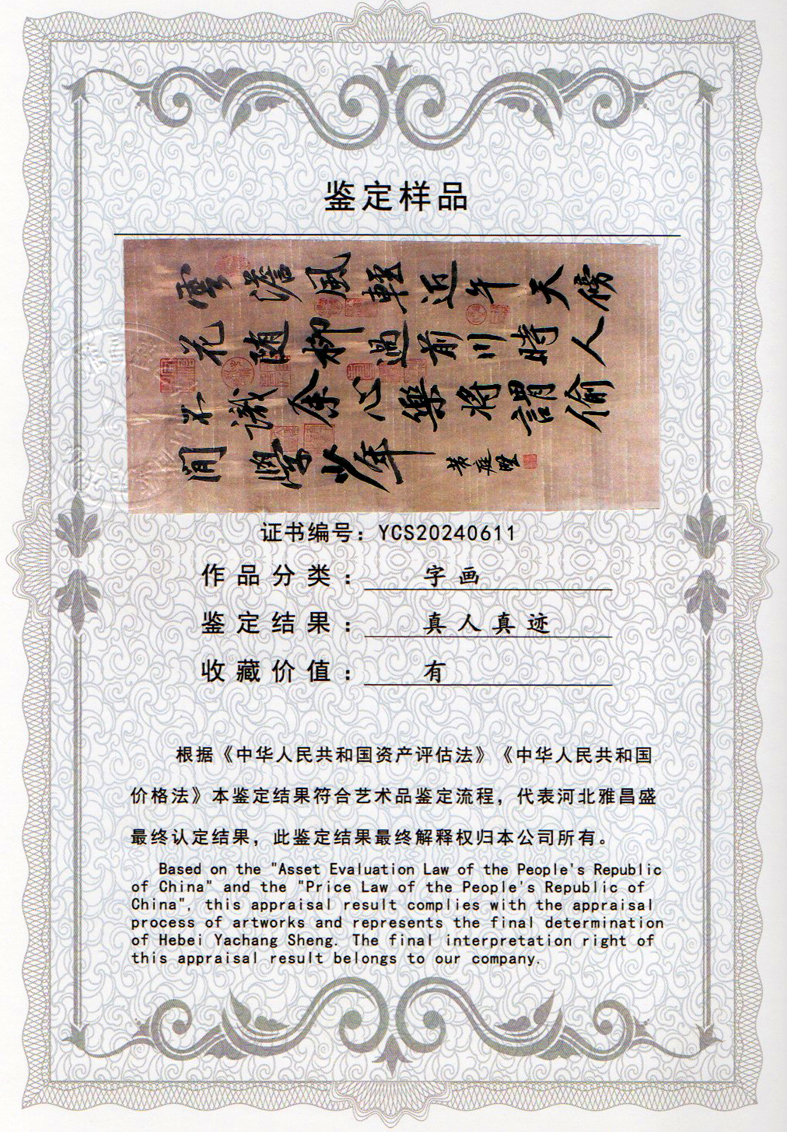 鉴定样品
雲澹風輕近午天傍
花随柳過前川時人
不識余心樂將謂偷
閒學少年
黄庭堅
证书编号：YCS20240611
作品分类：字画
鉴定结果：真人真迹
收藏价值：有
根据《中华人民共和国资产评估法》《中华人民共和国
价格法》本鉴定结果符合艺术品鉴定流程，代表河北雅昌盛
最终认定结果，此鉴定结果最终解释权归本公司所有。
Based on the "Asset Evaluation Law of the People's Republic
of China" and the "Price Law of the People's Republic of
China", this appraisal result complies with the appraisal
process of artworks and represents the final determination
of Hebei Yachang Sheng. The final interpretation right of
this appraisal result belongs to our company.